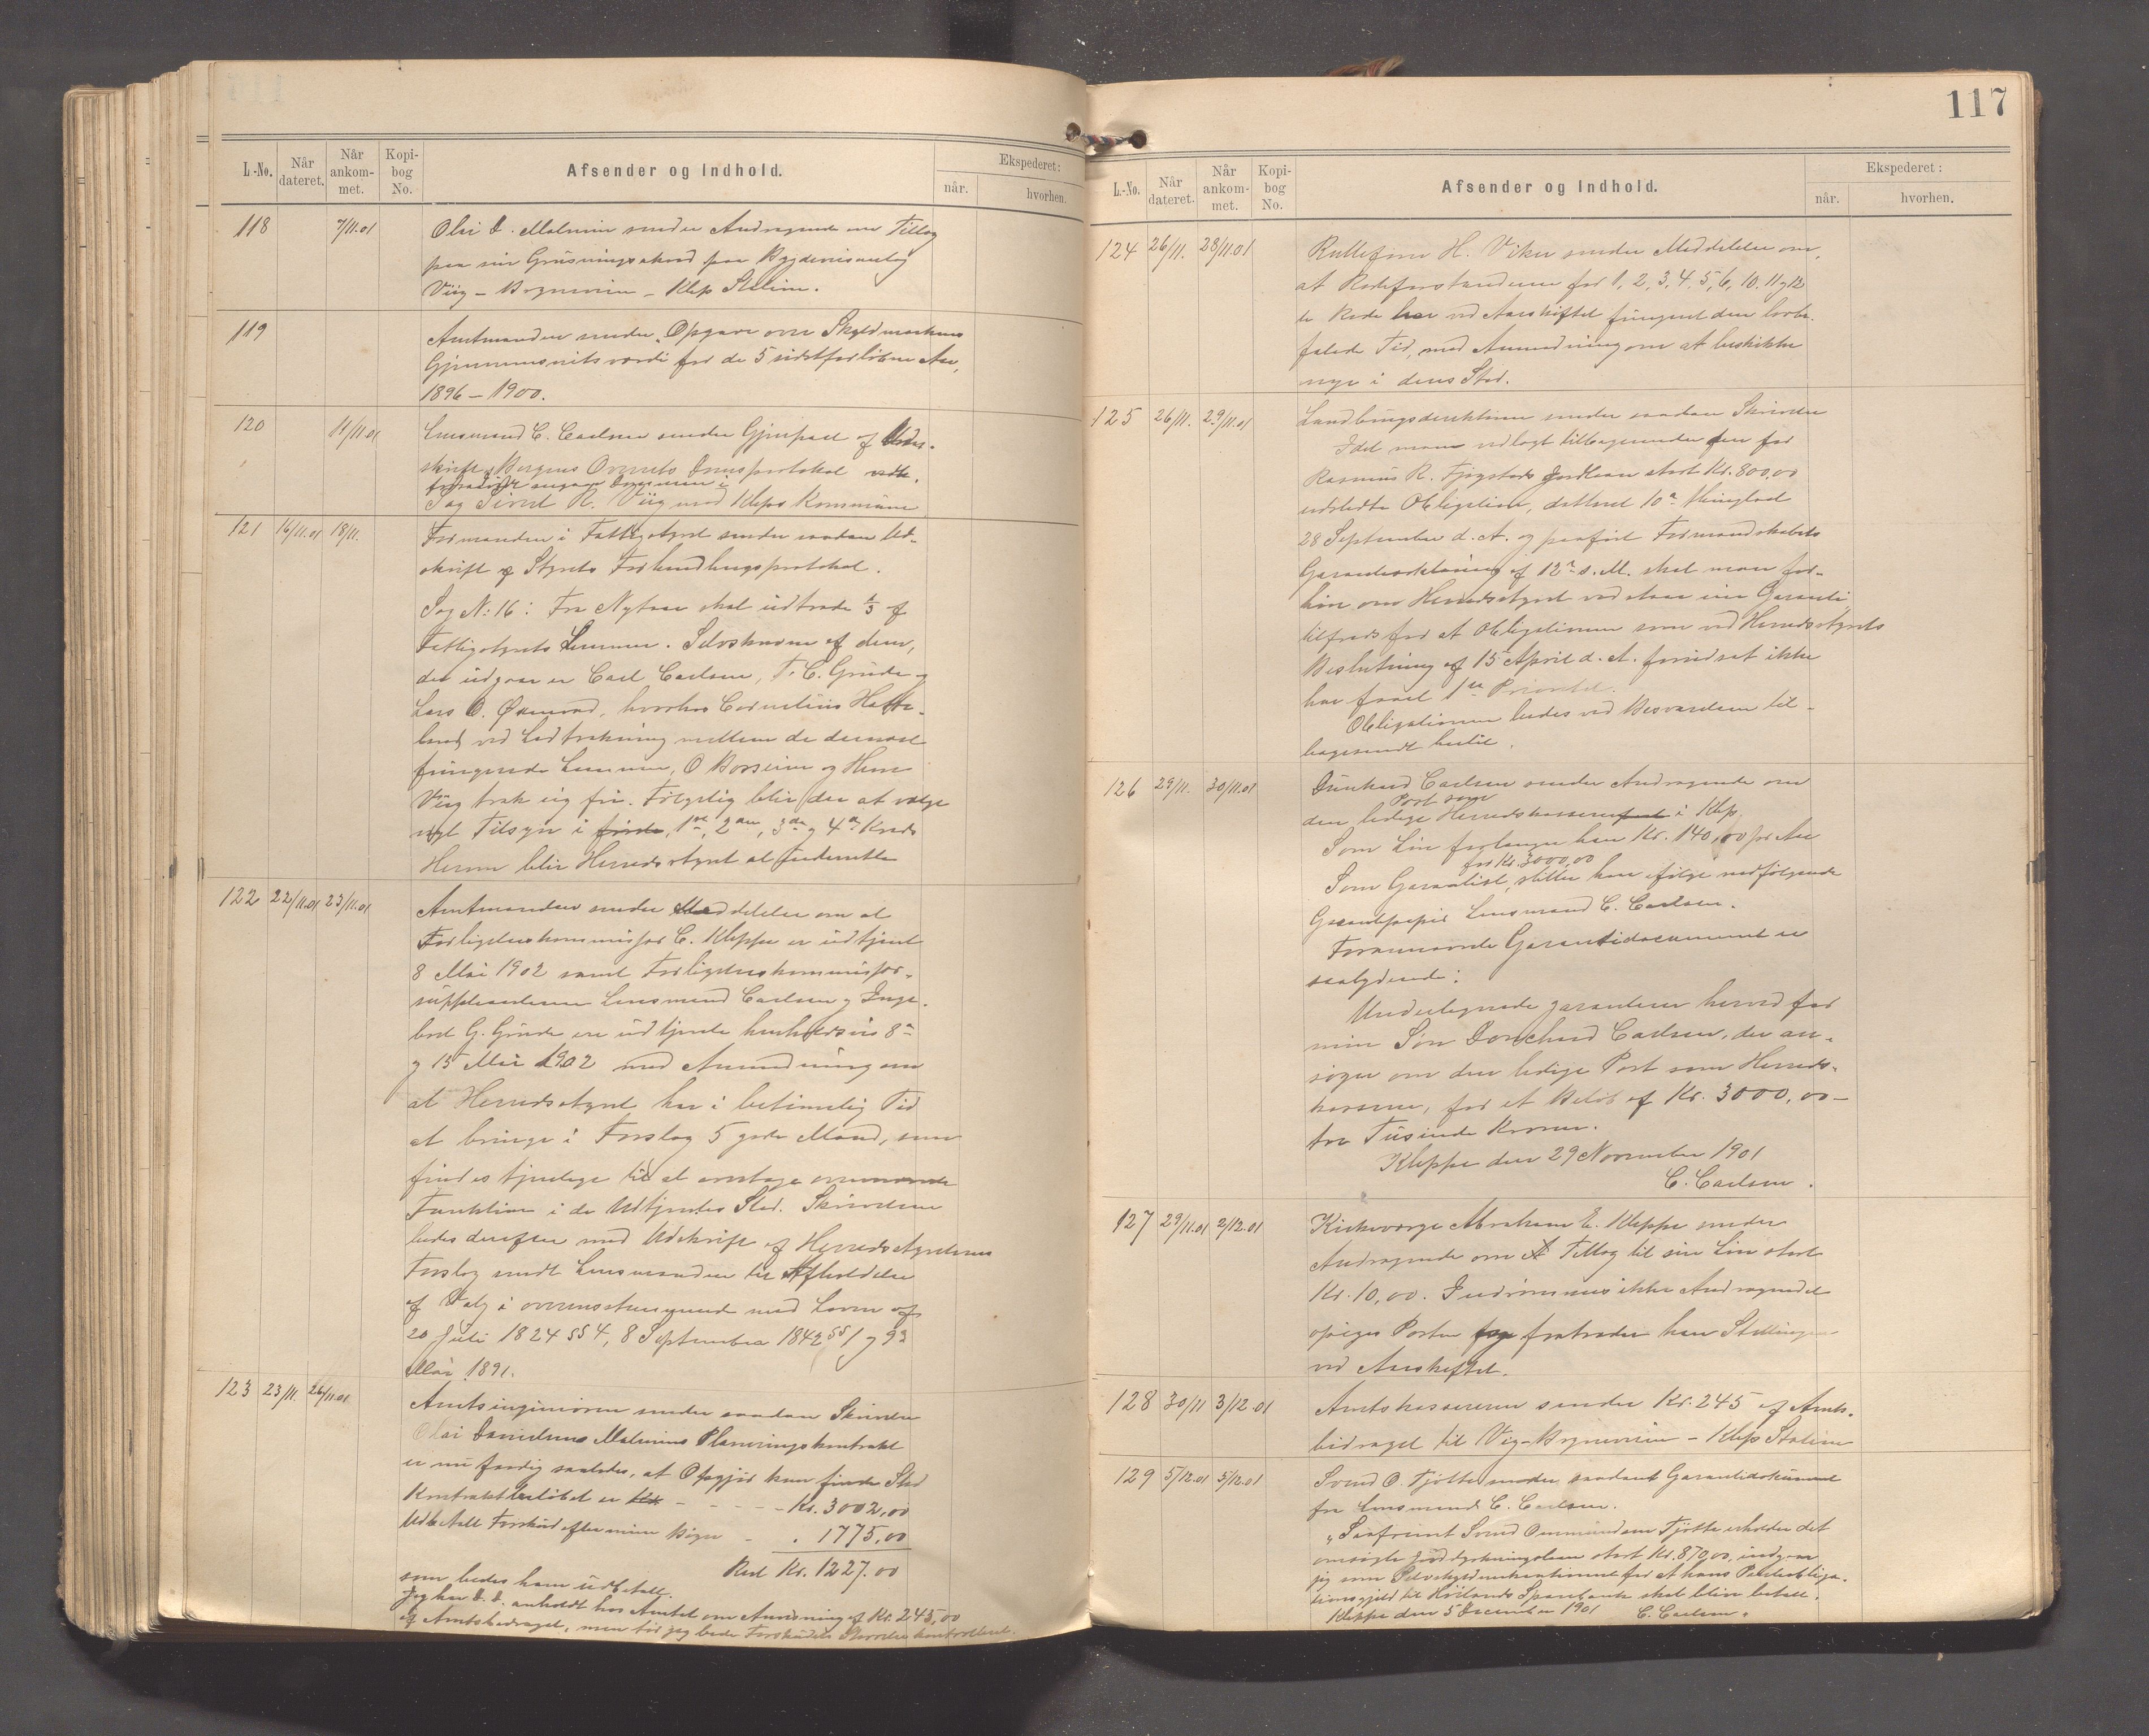 L.-No.
Når dateret.
Når ankommet.
Kopibog No.
Afsender og Indhold.
Ekspederet:
når.
hvorhen.
118 7/11.01 Olai D. Malmin sender Andragende om Tillæg
paa sin Grusningsakord paa Bygdeveisanlæg
Viig - Bryneveien - Klep Station.
119 Amtmanden sender Opgave over Skyldmarkens
Gjennemsnitsværdi for de 5 sidstforløbne Aar,
1896 - 1900.
120 11/11.01 Lensmand C. Carlsen sender Gjenpart af Uds-
skrift af Bergens Overrets Domsprotokol
Sag Sivert R. Viig mod Kleps Kommune
121 16/11.01 18/11. Formanden i Fattigstyret sender saadan Ud-
skrift af Styrets Forhandlingsprotokol.
Sag N: 16: Fra Nytaar skal udtræde af
Fattigstyrets Lemmer. Selvskrevne af dem,
der udgaar er Carl Carlsen, T. C. Grude og
Lars O. Øxnevad, hvorhos Cornelius
ved Lodtrækning mellem de dernæst
fungerende Lemmer, O Borsheim og Hans
Viig trak sig fri. Følgelig blir der at vælge
nyt Tilsyn i 1ste, 2den, 3de og 4de Kreds
Herom blir Herredsstyret at underrette
122 22/11.01 23/11.01 Amtmanden sender Meddelelse om at
Forligelseskommissær C. Kleppe er udtjent
8 Mai 1902 samt Forligelseskommissær-
suppleanterne Lensmand Carlsen og Inge-
bret G. Grude ere udtjente henholdsvis 8de
og 15 Mai 1902 med Anmodning om
at Herredsstyret har i betimelig Tid
at bringe i Forslag 5 gode Mænd, som
findes tjenlige til at overtage
Funktion i de Udtjentes Sted. Skrivelsen
bedes derefter med Udskrift af Herredsstyrelsens
Forslag sendt Lensmanden til Afholdelse
af Valg i overensstemmende med Loven af
20 Juli 1824 §§ 4, 8 September 1842 §§ 1 og 93
Mai 1891.
123 23/11. 26/11.01 Amtsingeniøren sender saadan Skrivelse
Olai Danielsens Malmins Planeringskontrakt
er nu færdig saaledes, at Opgjør kan finde Sted
Kontraktbeløbet er - - - - - Kr. 3002,00
Udbetalt Forskud efter mine Bøger - " 1775,00
Rest Kr. 1227.00
som bedes ham udbetalt.
Jeg har D. D. anholdt hos Amtet om Anvisning af Kr. 245,00
af Amtsbidraget, men før jeg beder Forskudets Størrelse kontrolleret.
117
L.-No.
Når dateret.
Når ankommet.
Kopibog No.
Afsender og Indhold.
Ekspederet:
når.
hvorhen.
124 26/11. 28/11.01 Rulleforer H. Viken sender Meddelelse om,
at Rodeforstanderne for 1, 2, 3, 4, 5, 6, 10. 11 og 12
te Rode har ved Aarsskiftet fungeret den lovbe-
falede Tid, med Anmodning om at beskikke
nye i deres Sted.
125 26/11. 29/11.01 Landbrugsdirektøren sender saadan Skrivelse
Idet man vedlagt tilbagesender den for
Rasmus R. Tjøgstads Jordlaan stort Kr. 800,00
udstedte Obligation, dateret 10de Thinglæst
28 September d. A. og paaført Formandskabets
Garantierklæring af 12te s. M. skal man for-
høre om Herredsstyret vedstaar sin Garanti
tilfreds for at Obligationen som ved Herredsstyrets
Beslutning af 15 April d. A. forudsat ikke
har faaet 1ste Prioritet.
Obligationen bedes ved Besvarelsen til-
bagesendt hertil.
126 29/11. 30/11.01 Dunkard Carlsen sender Andragende om
Post som
den ledige Herredskasserer i Klep.
Som Løn forlanger han Kr. 140,00 pr Aar
for Kr. 3000,00
Som Garantist, stiller han ifølge medfølgende
Garantipapir Lensmand C. Carlsen.
Forannævnte Garantidocument er
saalydende:
Undertegnede garanterer herved for
min Søn Donchard Carlsen, der an-
søger om den ledige Post som Herreds-
kasserer, for et Beløb af Kr. 3000,00 -
tre Tusinde Kroner.
Kleppe den 29 November 1901
C. Carlsen.
127 29/11.01 2/12.01 Kirkeværge Abraham E. Kleppe sender
Andragende om Tillæg til sin Løn stort
Kr. 10,00. Indrømmes ikke Andragendet
opsiges Posten fratræder han Stillingen
ved Aarsskiftet.
128 30/11 3/12.01 Amtskassereren sender Kr. 245 af Amts-
bidraget til Vig-Bryneveien - Klep Station
129 5/12.01 5/12.01 Svend O. Tjøtta sender saadant Garantidokument
fra Lensmand C. Carlsen.
"Saafremt Svend Ommundsen Tjøtta erholder det
omsøgte Jorddyrkningslaan stort Kr. 870,00, indgaar
jeg som Selvskyldnerkautionist for at hans
tionsgjæld til Høilands Sparebank skal blive betalt.
Kleppe den 5 December 1901 C. Carlsen.